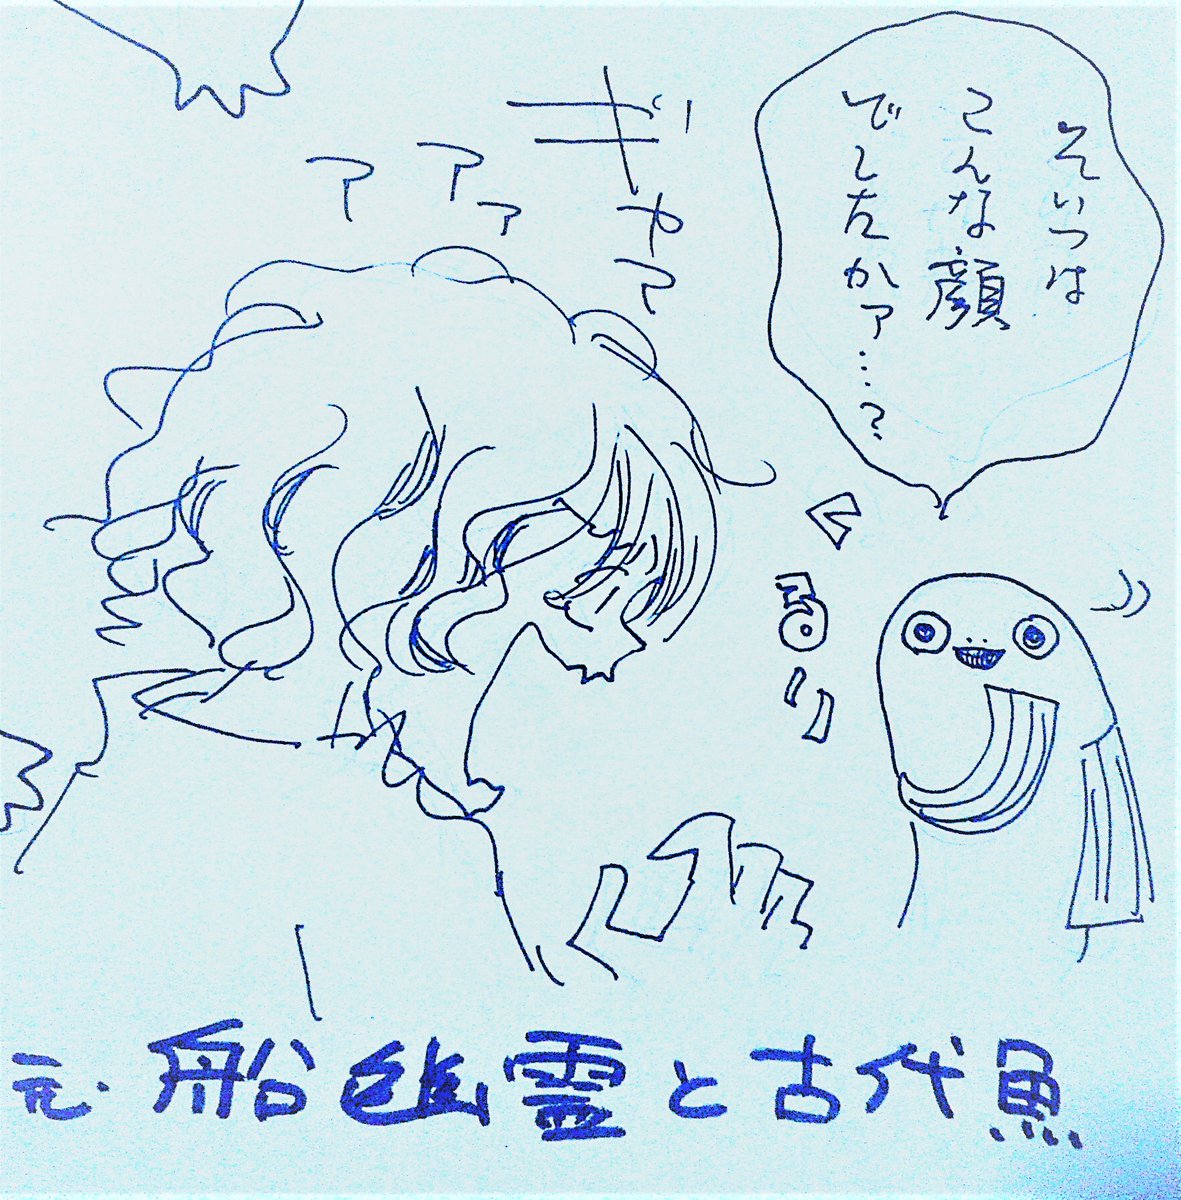 そいつは
こんな顔
でしたかァ…?
ぎゃア
アアァ
くるり
元・船幽霊と古代魚